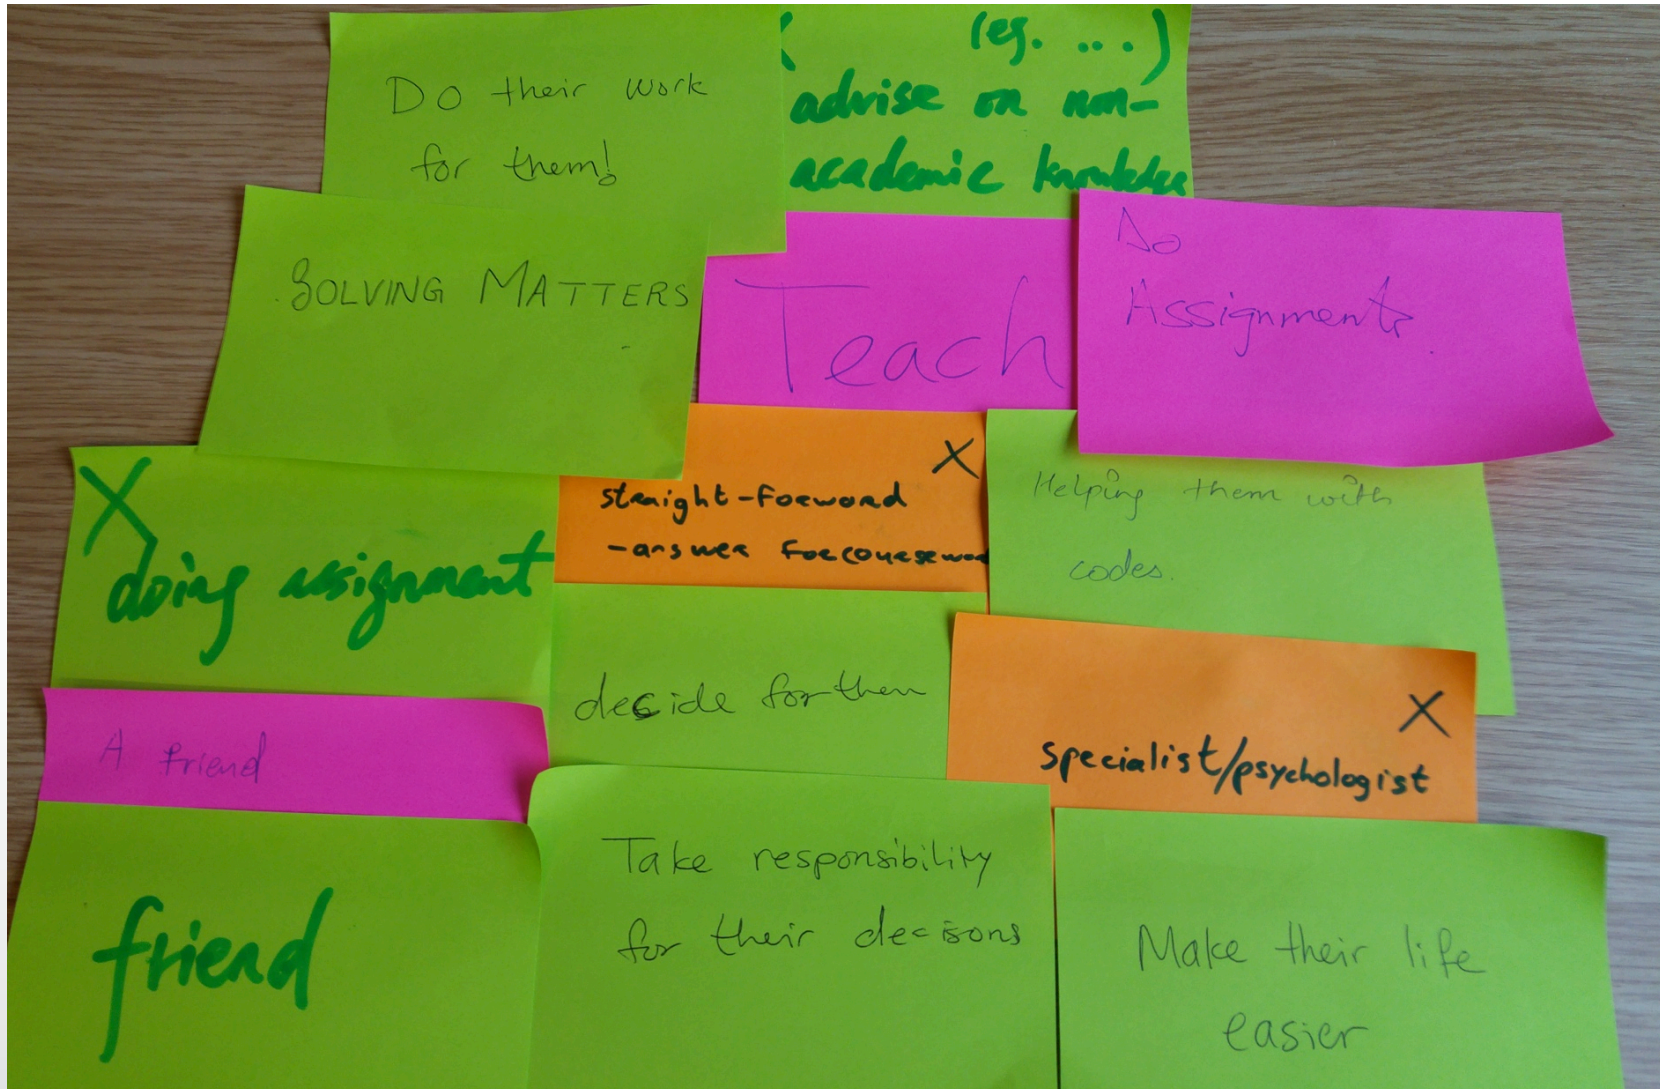 Do their work
for them!
(eg. ...)
advise on non-
academic knowledge
SOLVING MATTERS
Teach
Do
Assignments.
X
doing assignment
X
straight-forward
-answer for coursewo
Helping them with
codes.
A friend
decide for them
X
specialist/psychologist
friend
Take responsibility
for their decisons
Make their life
easier